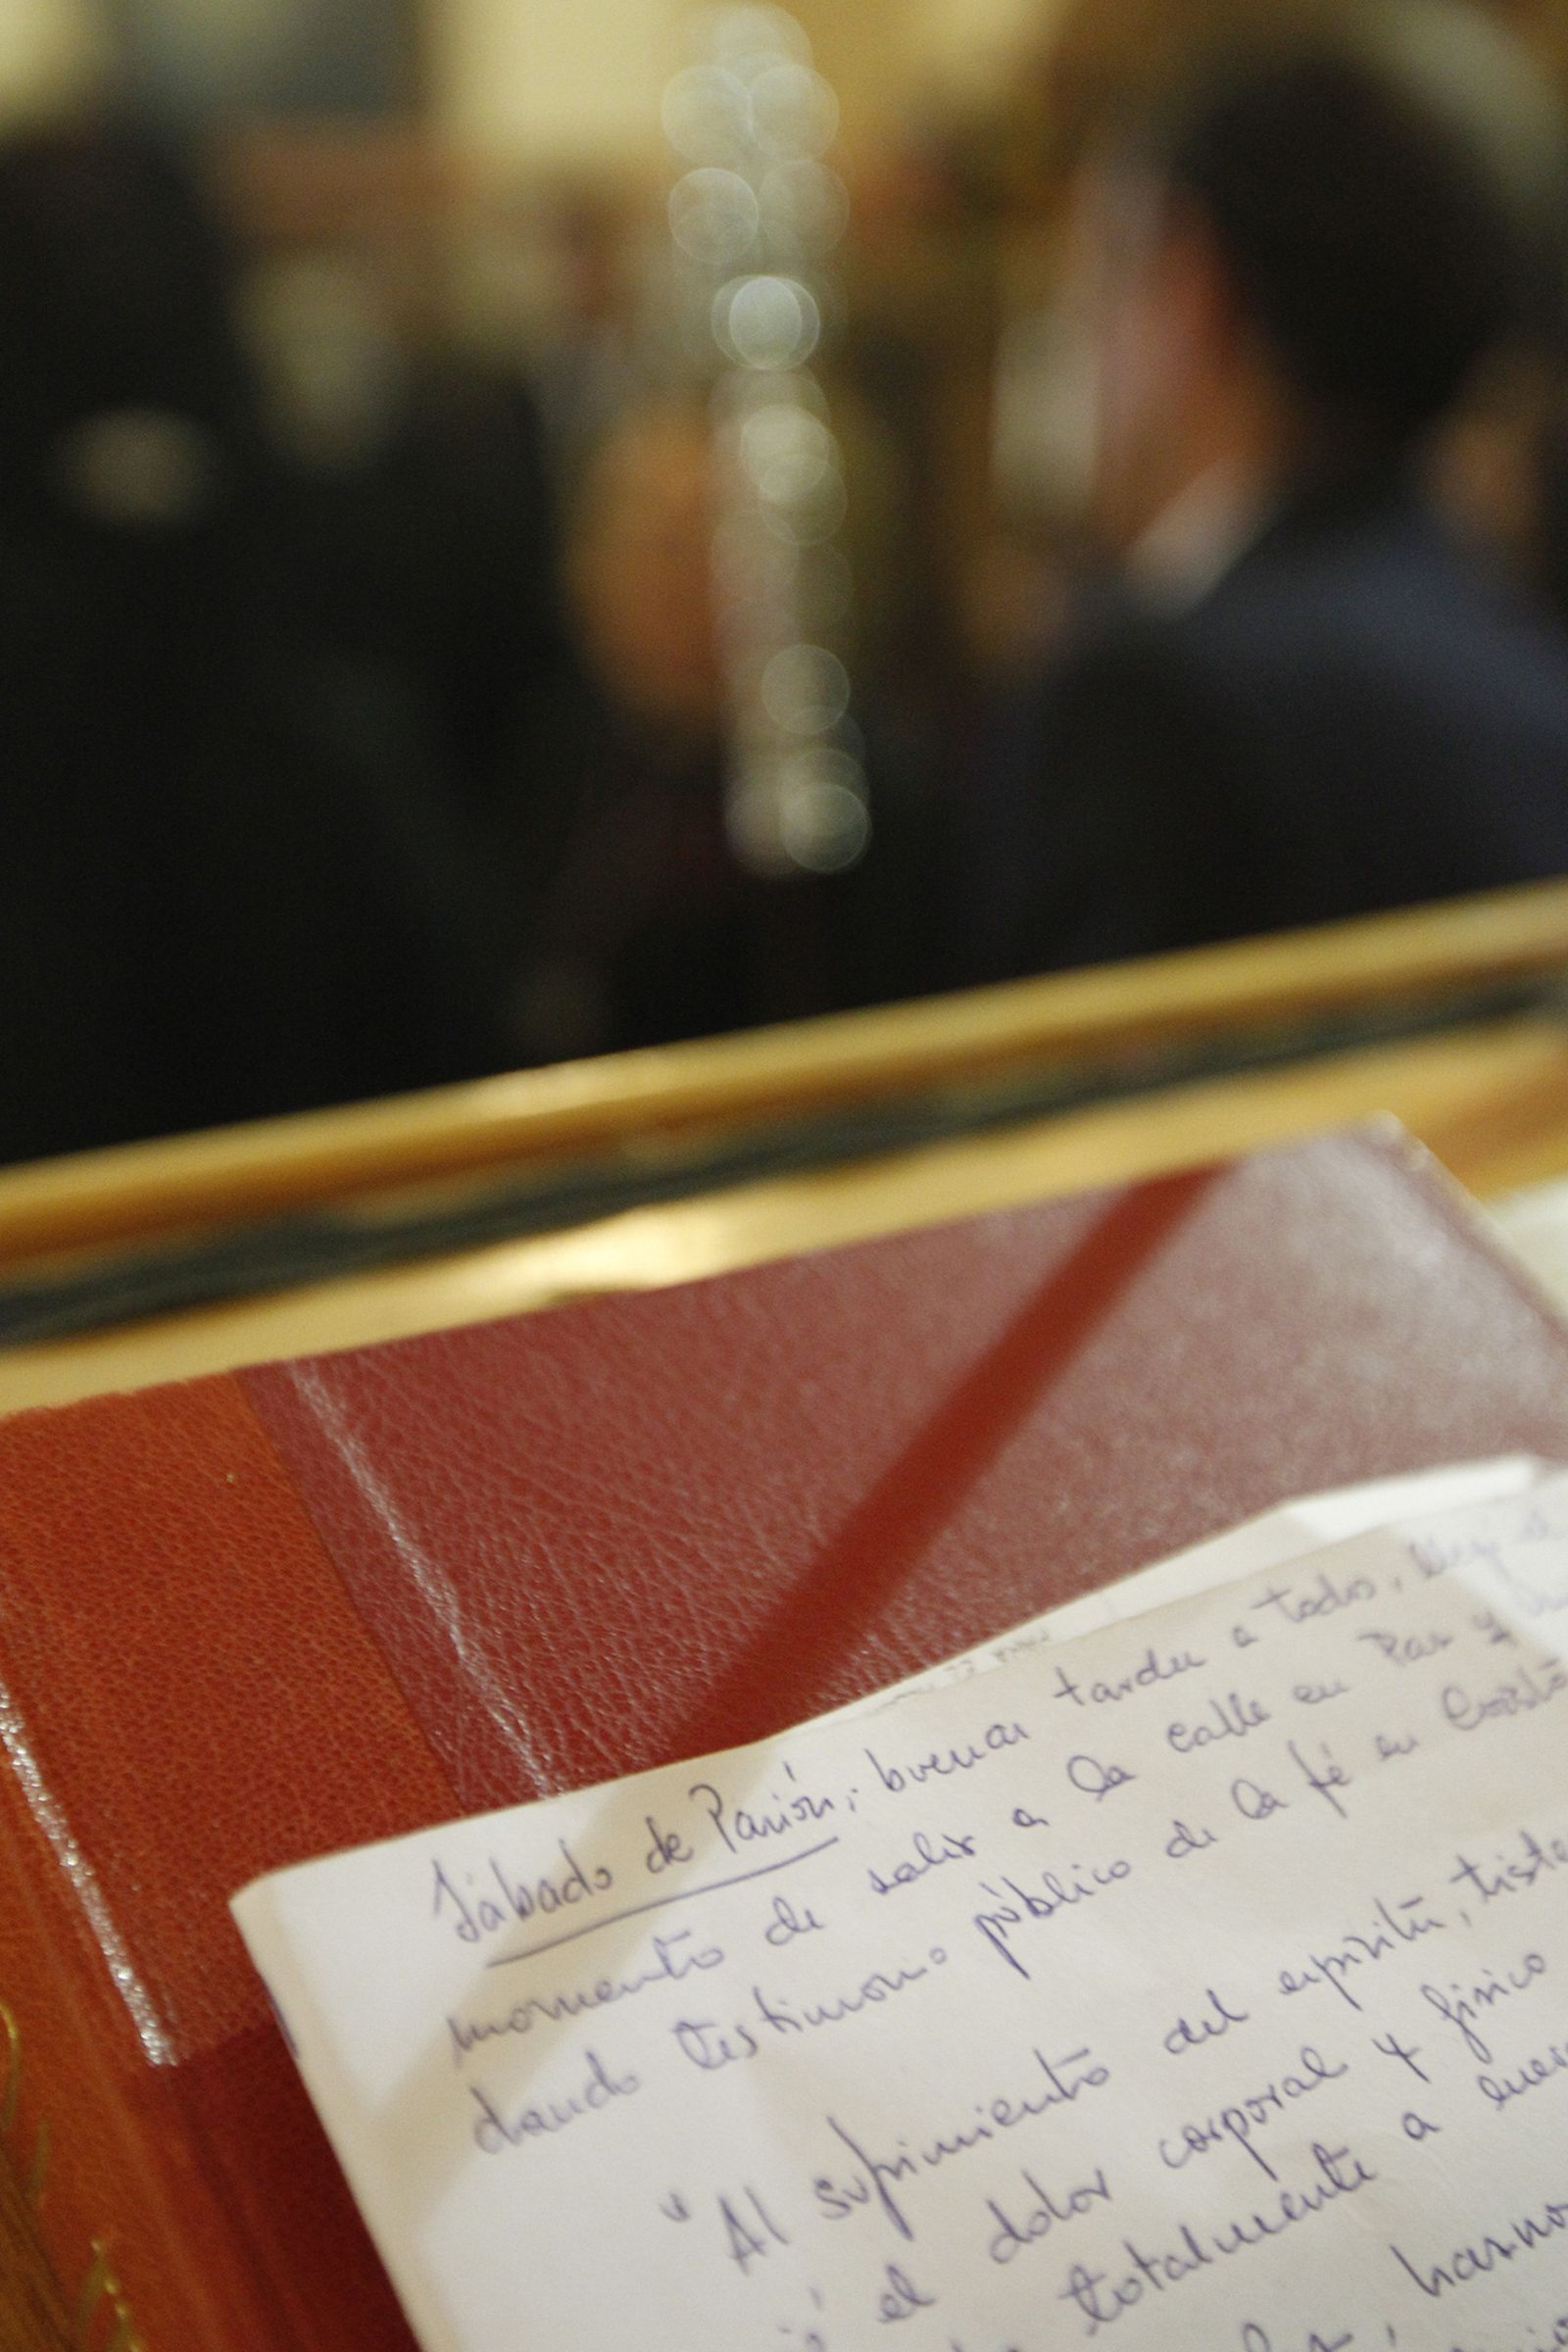 Sábado de Pasión, buenas tardes a todos, llegó el
momento de salir a la calle en Paz y
dando testimonio público de la fé en Cristo
"Al sufrimiento del espíritu,
el dolor corporal y físico
totalmente a